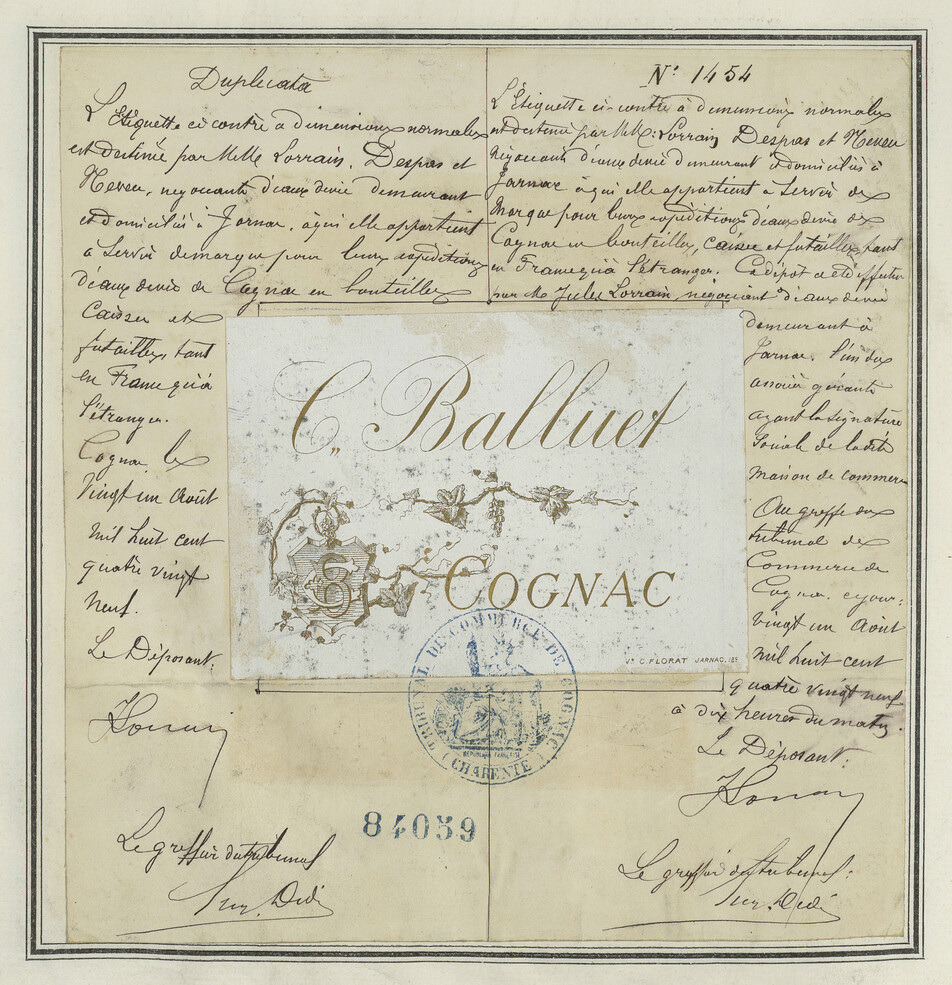 Duplicata
L'Etiquette ci contre à dimensions normales
est destinée par MMe Lorrain, Despas et
Neveu, negociants d'eaux devie demeurant
et domiciliés à Jarnac, à qui elle appartient
a Servir demarque pour leurs expeditions
d'eaux devie de Cognac en bouteilles
Caisses et
futailles, tant
en France qu'à
l'étranger.
Cognac, le
Vingt un Août
Mil huit cent
quatre vingt
Neuf.
Le Déposant:
Le greffier du tribunal
N° 1454
L'Etiquette ci-contre à dimensions normales
est destinée par MM: Lorrain, Despas et Neveu
Négociants d'eaux devie demeurant et domiciliés à
Jarnac à qui elle appartient a Servir de
Marque pour leurs expéditions d'eaux devie de
Cognac en bouteilles, caisses et futailles, tant
en France qu'à l'étranger. Ce dépôt a été effectué
par Mr Jules Lorrain négociant d'eaux devie
demeurant à
Jarnac, l'un des
associés gérants
ayant la signature
Sociale de ladite
maison de commerce
Au greffe du
tribunal de
Commerce de
Cognac, ce jour:
Vingt un Août
Mil huit cent
quatre vingt neuf
à dix heures du matin.
Le Déposant:
Le greffier du tribunal:
C. Balluet
COGNAC
Ve C. FLORAT JARNAC.
TRIBUNAL DE COMMERCE DE COGNAC
REPUBLIQUE FRANÇAISE
(CHARENTE)
84059